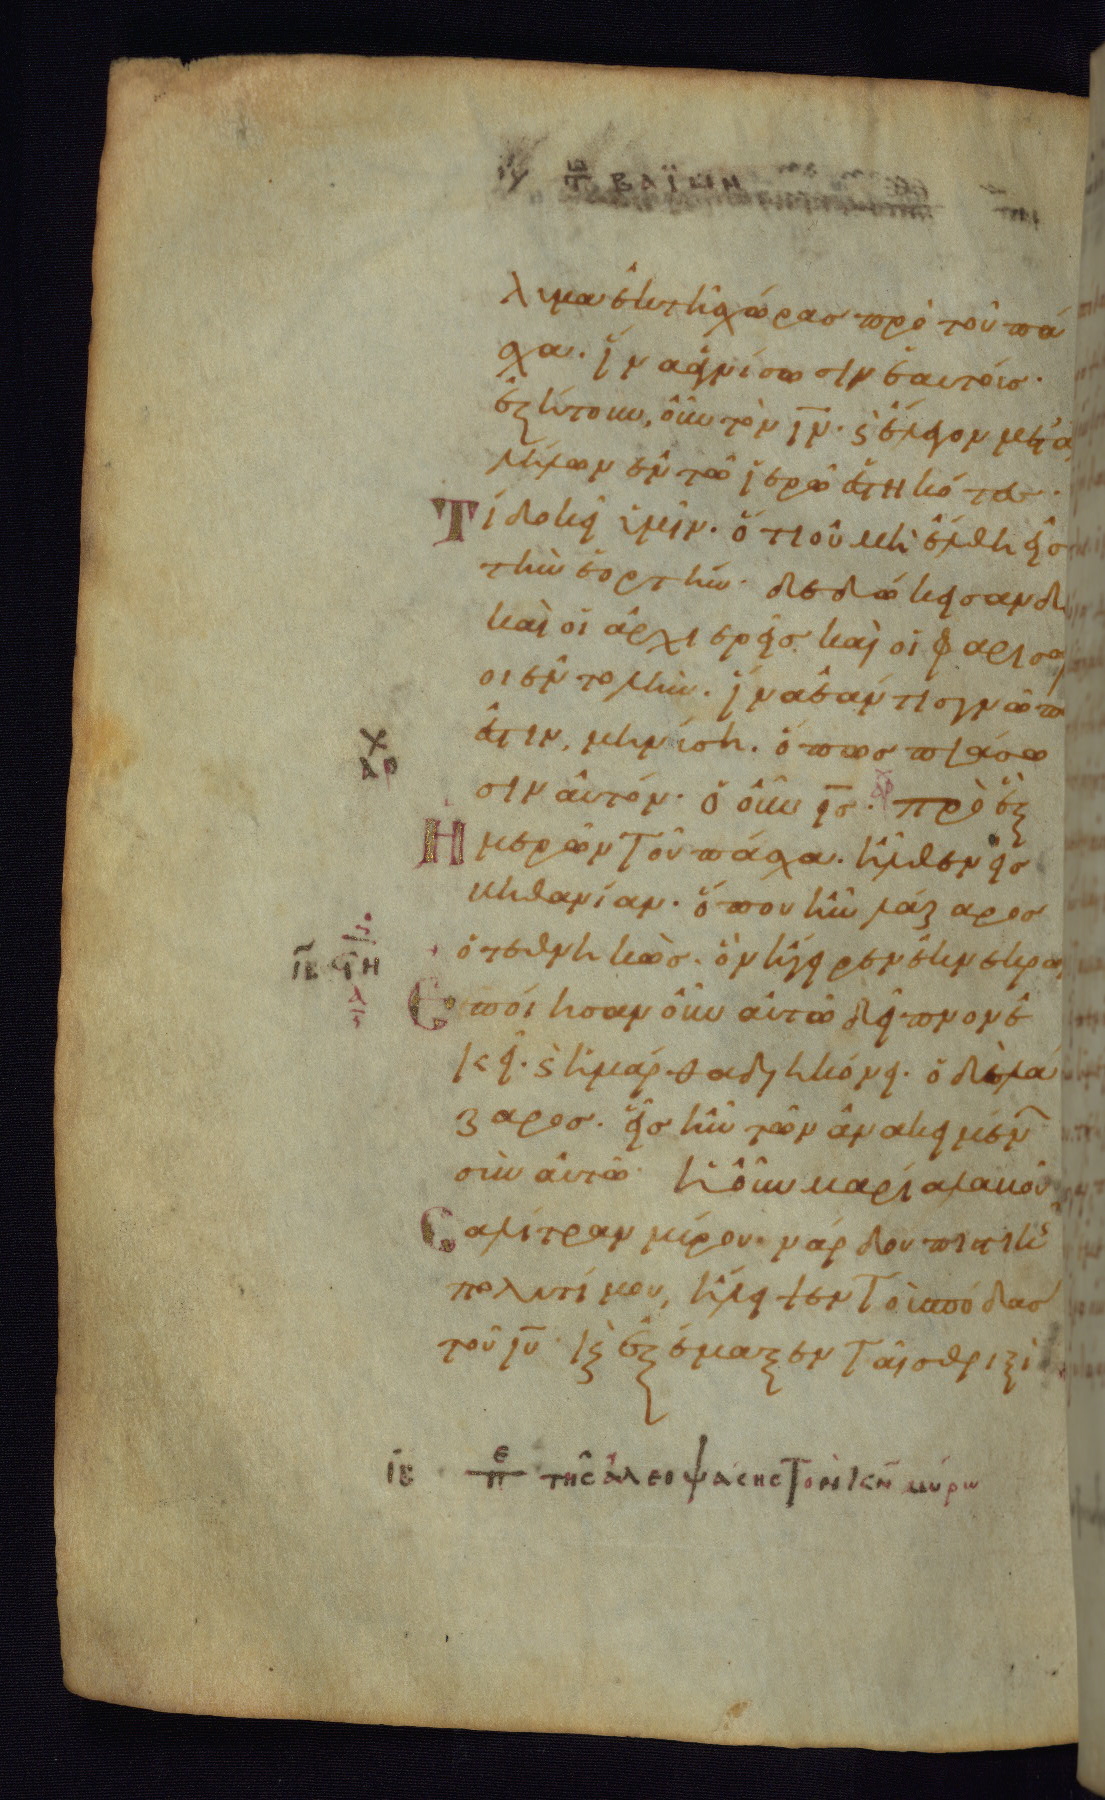 λυμα ἐκ τῆς χώρας πρὸ τοῦ πά
σχα· ἵνα ἁγνίσωσιν ἑαυτούς·
ἐζήτουν, οὖν τὸν ιν· ϛ ἔλεγον μετ' ἀ
λλήλων ἐν τῶ ἱερῶ ἑστηκότες·
Τί δοκεῖ ὑμῖν· ὅτι οὐ μὴ ἔλθη εἰς
τὴν ἑορτήν· δεδώκεισαν δὲ
καὶ οἱ ἀρχιερεῖς καὶ οἱ φαρισαῖ
οι ἐντολήν· ἵνα ἐάν τις γνῶ ποῦ
ἐστιν, μηνύση· ὅπως πιάσω
σιν αὐτόν· ὁ οὖν ις· πρὸ ἓξ
Ημερῶν τοῦ πάσχα· ἦλθεν εἰς
βηθανίαν· ὅπου ἦν λάζαρος
ὁ τεθνηκώς· ὃν ἤγειρεν ἐκ νεκρῶν
Εποίησαν οὖν αὐτῶ δεῖπνον ἐ
κεῖ· ϛ ἡ μάρθα διηκόνει· ὁ δὲ λά
ζαρος· εἷς ἦν τῶν ἀνακειμένων
σὺν αὐτῶ· ἡ οὖν μαρία λαβοῦ
Σα λίτραν μύρου· νάρδου πιστικῆς
πολυτίμου, ἤλειψεν τοὺς πόδας
τοῦ ιυ· κ ἐξέμαξεν ταῖς θριξὶ
ιβ π ε τῆς ἀλειψάσης τὸν κν μύρω